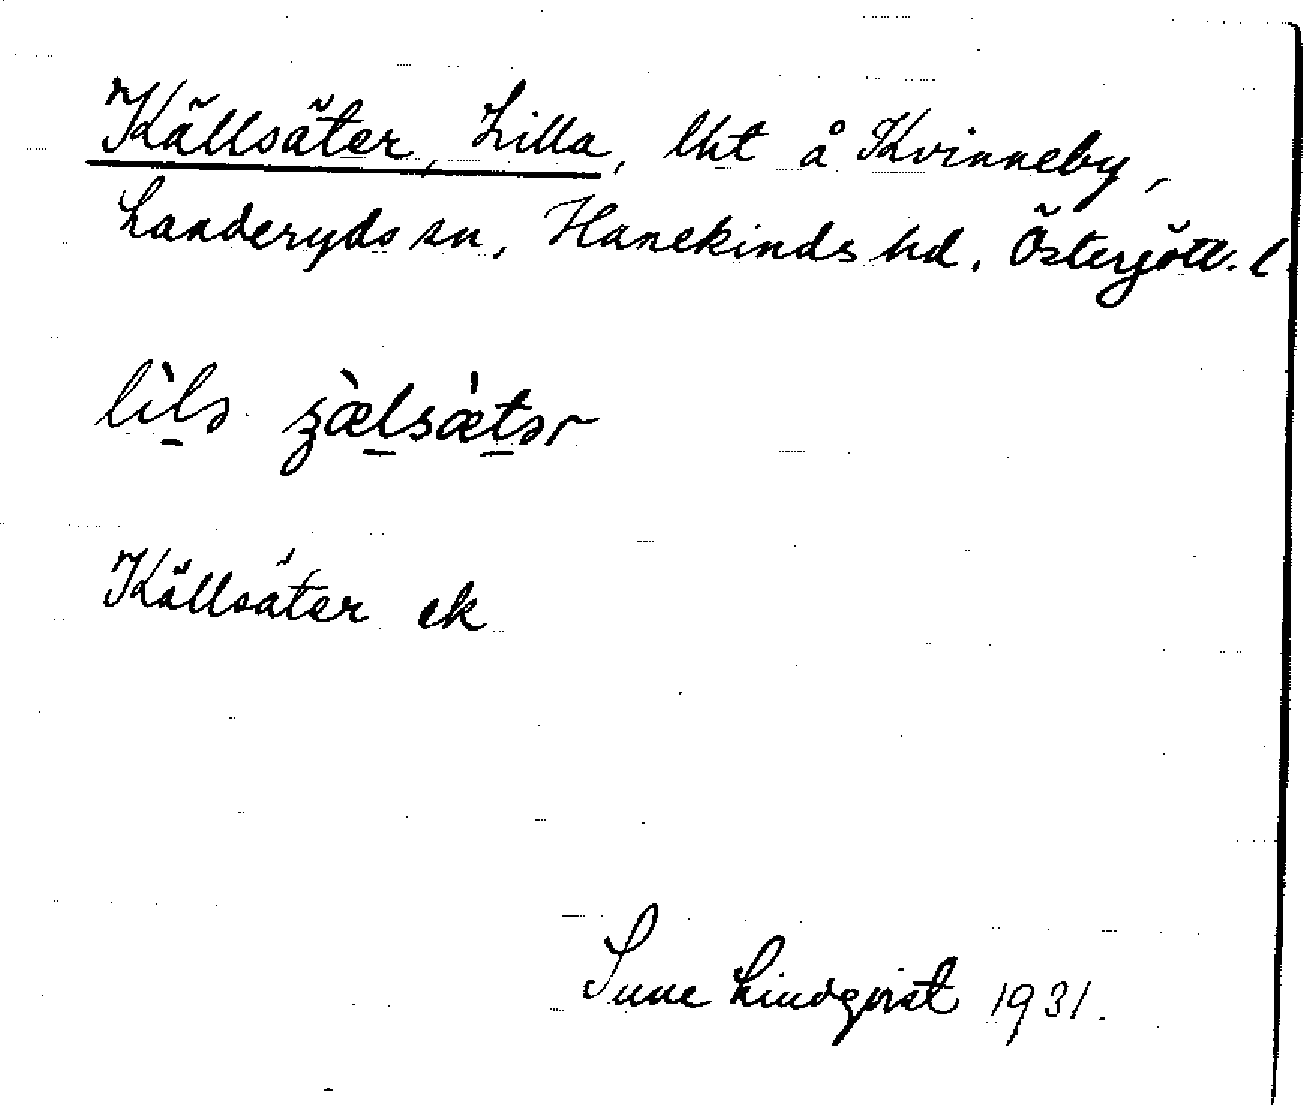 Källsäter, Lilla, lht å Kvinneby,
Landeryds sn, Hanekinds hd, Östergötl. l.
lìlə ʒæ̀lsæ̍tər
Källsäter ek
Sune Lindqvist 1931.